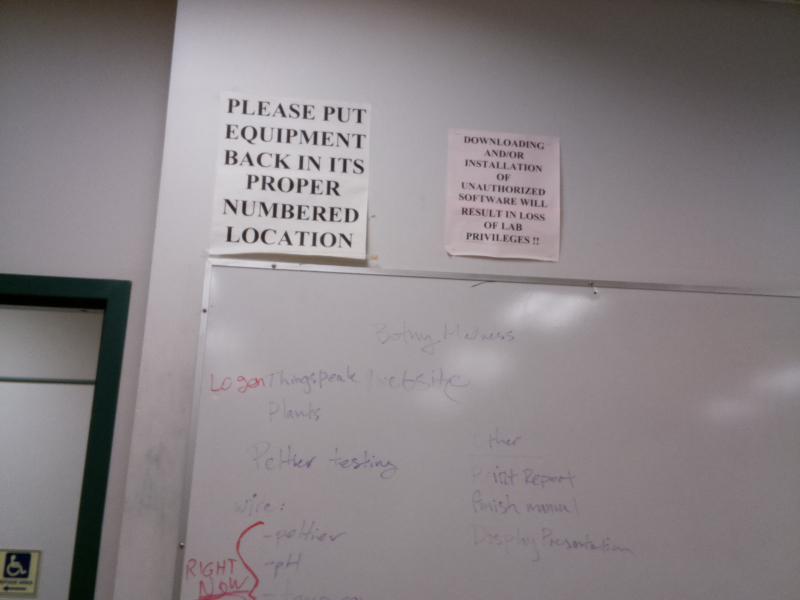 PLEASE PUT
EQUIPMENT
BACK IN ITS
PROPER
NUMBERED
LOCATION
DOWNLOADING
AND/OR
INSTALLATION
OF
UNAUTHORIZED
SOFTWARE WILL
RESULT IN LOSS
OF LAB
PRIVILEGES !!
Botny Madness
Logan Thingspeak / website
Plants
Peltier testing
wire:
-peltier
-pH
RIGHT
NOW
Other
Print Report
finish manual
Display Presentation